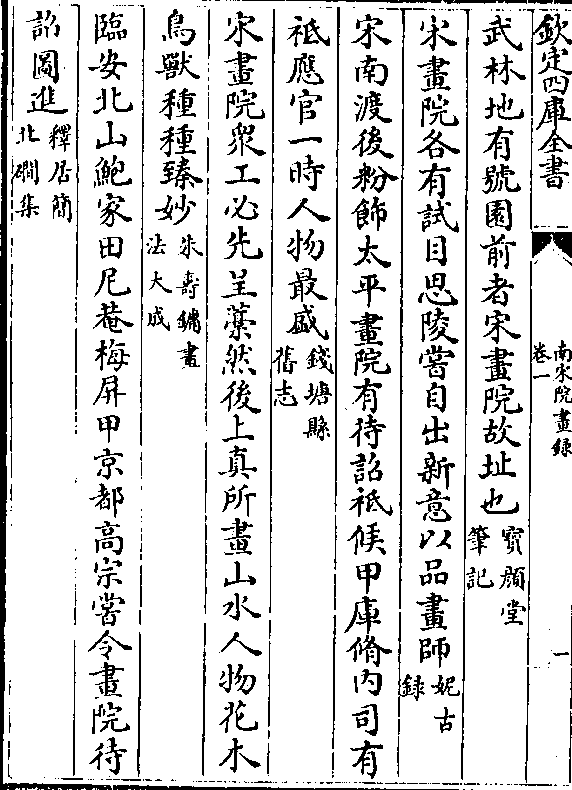 欽定四庫全書
南宋院畫錄
卷一
一
武林地有號園前者宋畫院故址也寶顏堂
筆記
宋畫院各有試目思陵嘗自出新意以品畫師妮古
録
宋南渡後粉飾太平畫院有待詔祗候甲庫脩內司有
祗應官一時人物最盛錢塘縣
舊志
宋畫院衆工必先呈藁然後上真所畫山水人物花木
鳥獸種種臻妙朱壽鏞畫
法大成
臨安北山鮑家田尼菴梅屏甲京都高宗嘗令畫院待
詔圖進釋居簡
北磵集